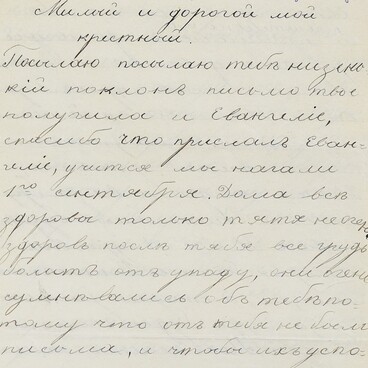 Милый и дорогой мой
крестный.
Посылаю посылаю тебѣ низень-
кій поклонъ письмо твое
получила и Евангеліе,
спасибо что прислалъ Еван-
геліе, учится мы начали
1го сентября. Дома всѣ
здоровы только тятя не очень
здоровъ послѣ тебя все грудь
болитъ отъ упаду, они очень
сумнѣвались объ тебѣ по-
тому что отъ тебя не было
письма, и чтобы ихъ успо-